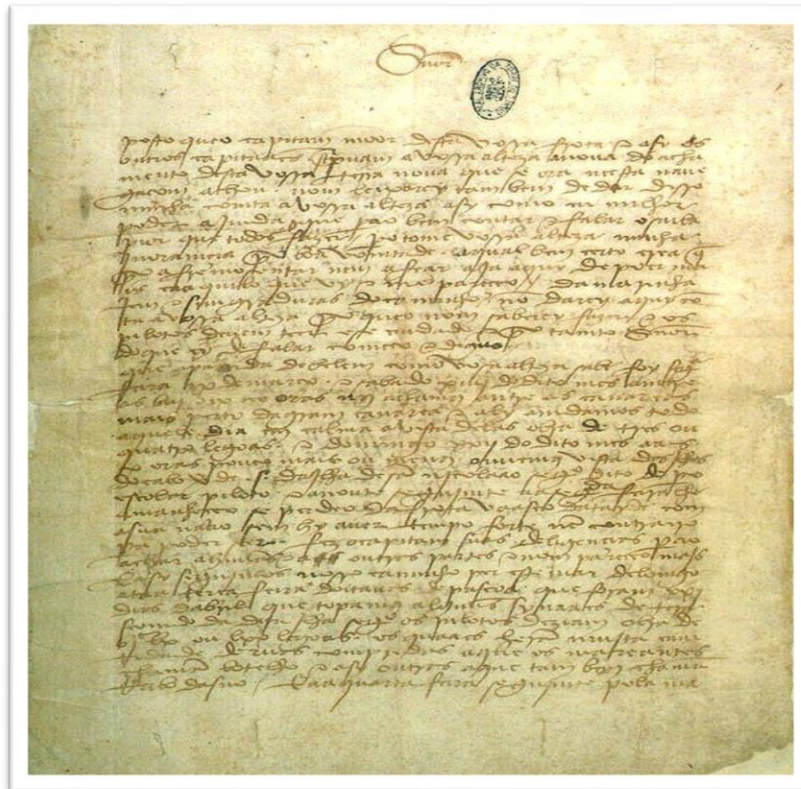 Snõr
posto queo capitam moor desta vossa frota e asy os
outros capitaães screpuam a vossa alteza a noua do acha
mento desta vossa terra noua que se ora neesta naue
gaçam achou. nom leixarey tambem de dar disso
minha comta a vossa alteza asy como eu milhor
poder ajmda que perao bem contar e falar o saiba
pior que todos fazer. pero tome vossa alteza minha
jnoramçia por boa vomtade. aqual bem çerto crea q
por afremosentar nem afear aja aquy de poer ma
is caaquilo que vy e me pareçeo. / da marinha
jem e simgraduras do caminho nõ darey aquy cõ
ta a vossa alteza por queo nom saberey fazer e os
pilotos deuem teer ese cuidado e por tanto Snõr
do que ey de falar começo e diguo
que apartida de belem como vosa alteza sabe foy segª
feira ix de março. e sabado xiiij do dito mes amtre
as biij e ix oras nos achamos antre as canareas
mais perto da gram canarea e aly amdamos todo
aquele dia em calma avista delas obra de tres ou
quatro legoas. e domingo xxij do dito mes aas
x oras pouco mais ou menos ouuemos vista das jlhas
do cabo verde .s. dajlha de sã njcolaao segº dito de pº
escolar piloto. e anoute segujmte aasegª feira lhe
amanheçeo se perdeo da frota vaasco datayde com
a sua naao sem hy auer tempo forte nẽ contrairo
pera poder seer. fez ocapitam suas deligençias perao
achar ahuũas e a outras partes e nom pareçeo majs
E asy segujmos nosso caminho per este mar delomgo
ataa terça feira doitauas de pascoa que foram xxj
dias dabril que topamos alguũs synaaes de tera
seemdo da dita jlha segº os pilotos deziam obra de
bjc lx ou lxx legoas. os quaaes heram mujta cam
tidade deruas compridas aque os mareantes
chamam botelho e asy outras aque tam bem chama
Rabo dasno / E aa quarta feira segujmte pola ma